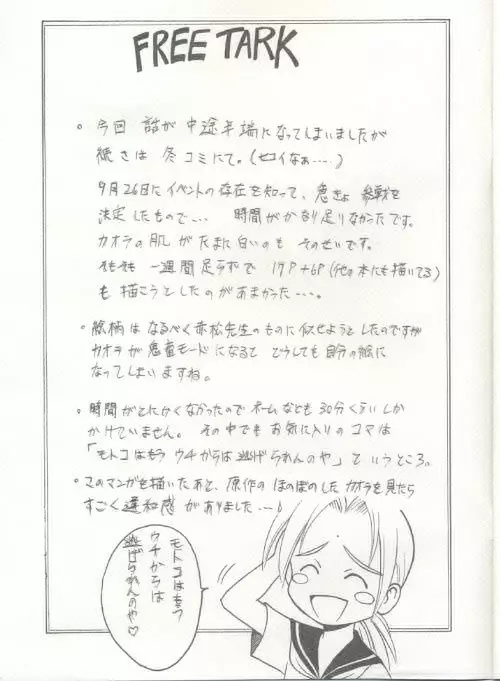 FREE TARK
。今回 話が 中途半端になってしまいましたが
続きは 冬コミにて。(セコイなぁ…‥)
9月26日にイベントの存在を知って、急きょ 参戦を
決定したもので… 時間がかなり足りなかたです。
カオラの肌がたまに白いのも そのせいです。
そもそも 一週間足らずで 17P+6P(他の本にも描いてる)
も描こうとしたのがあまかった…。
。絵柄は なるべく赤松先生のものに似せようとしたのですが
カオラが悪童モードになると どうしても自分の絵に
なってしまいますね。
。時間がとにかくなかったので ネームなども 30分くらいしか
かけていません。 その中でも お気に入りのコマは
「モトコはもう ウチからは 逃げられんのや」というところ。
。このマンガを描いたあと、原作の ほのぼのした カオラを見たら
すごく 違和感 がありました…♪
モトコはもう
ウチからは
逃げられんのや♡